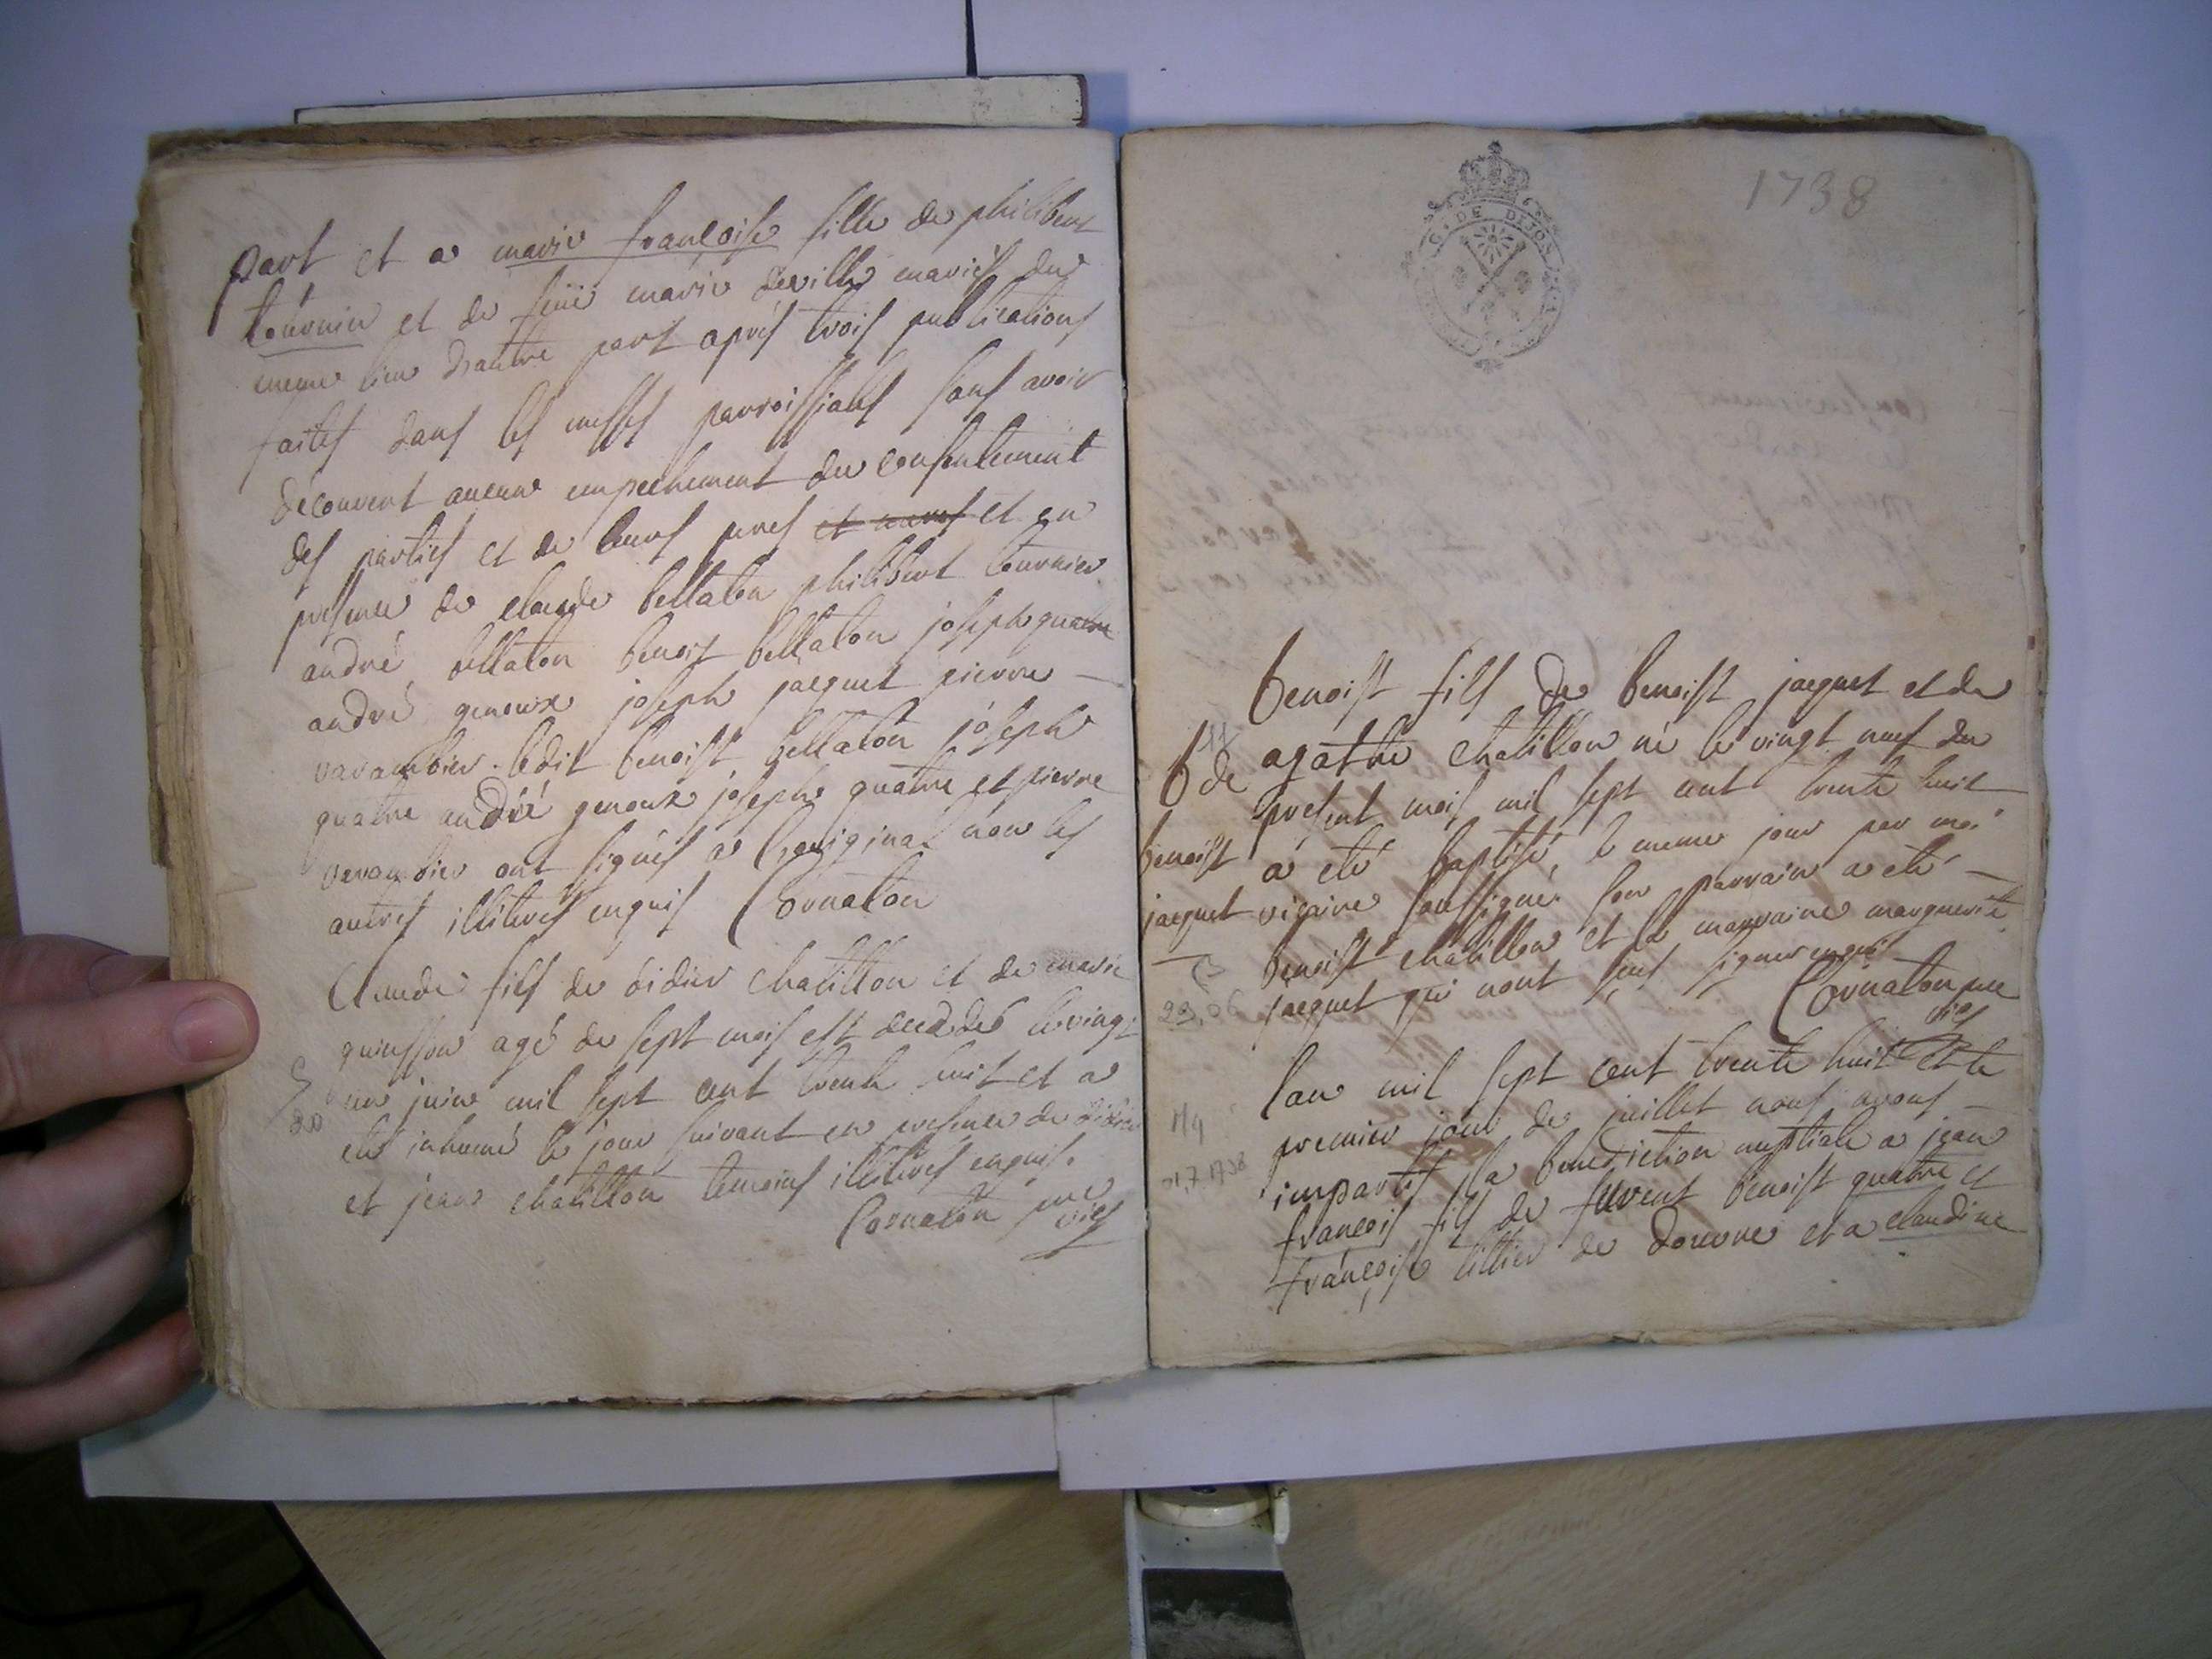 part et a marie françoise fille de philibert
tournier et de feüe marie deville mariés du
meme lieu d'autre part après trois publications
faites dans les messes parroissiales sans avoir
découvert aucune empechement du consentement
des parties et de leurs peres et meres et en
presence de claude bellaton philibert tournier
andré bellaton benoist bellaton joseph quatre
andré genoux joseph jacquet pierre
varambier. ledit benoist bellaton joseph
quatre andré genoux joseph quatre et pierre
varambier ont signés a l'original non les
autres illiterés enquis Cornaton
Claude fils de didier chatillon et de marie
quinsson agé de sept mois est decedé le vingt
un juin mil sept cent trente huit et a
eté inhumé le jour suivant en presence de didier
et jean chatillon temoins illiterés enquis.
Cornaton pre
vics
1738
G. DE DIJON
benoist fils de benoist jacquet et de
agathe chatillon né le vingt neuf du
present mois mil sept cent trente huit
a eté baptisé le meme jour par moi
vicaire soussigné son parrain a eté
benoist chatillon et la marraine marguerite
jacquet qui n'ont sçus signer enquis
Cornaton pre
vics
b de
benoist
jacquet
29.06
lan mil sept cent trente huit et le
premier jour de juillet nous avons
impartis la benediction nuptiale a jean
françois fils de furent benoist quatre et
françoise tillier de douvre et a claudine
01.7.1738